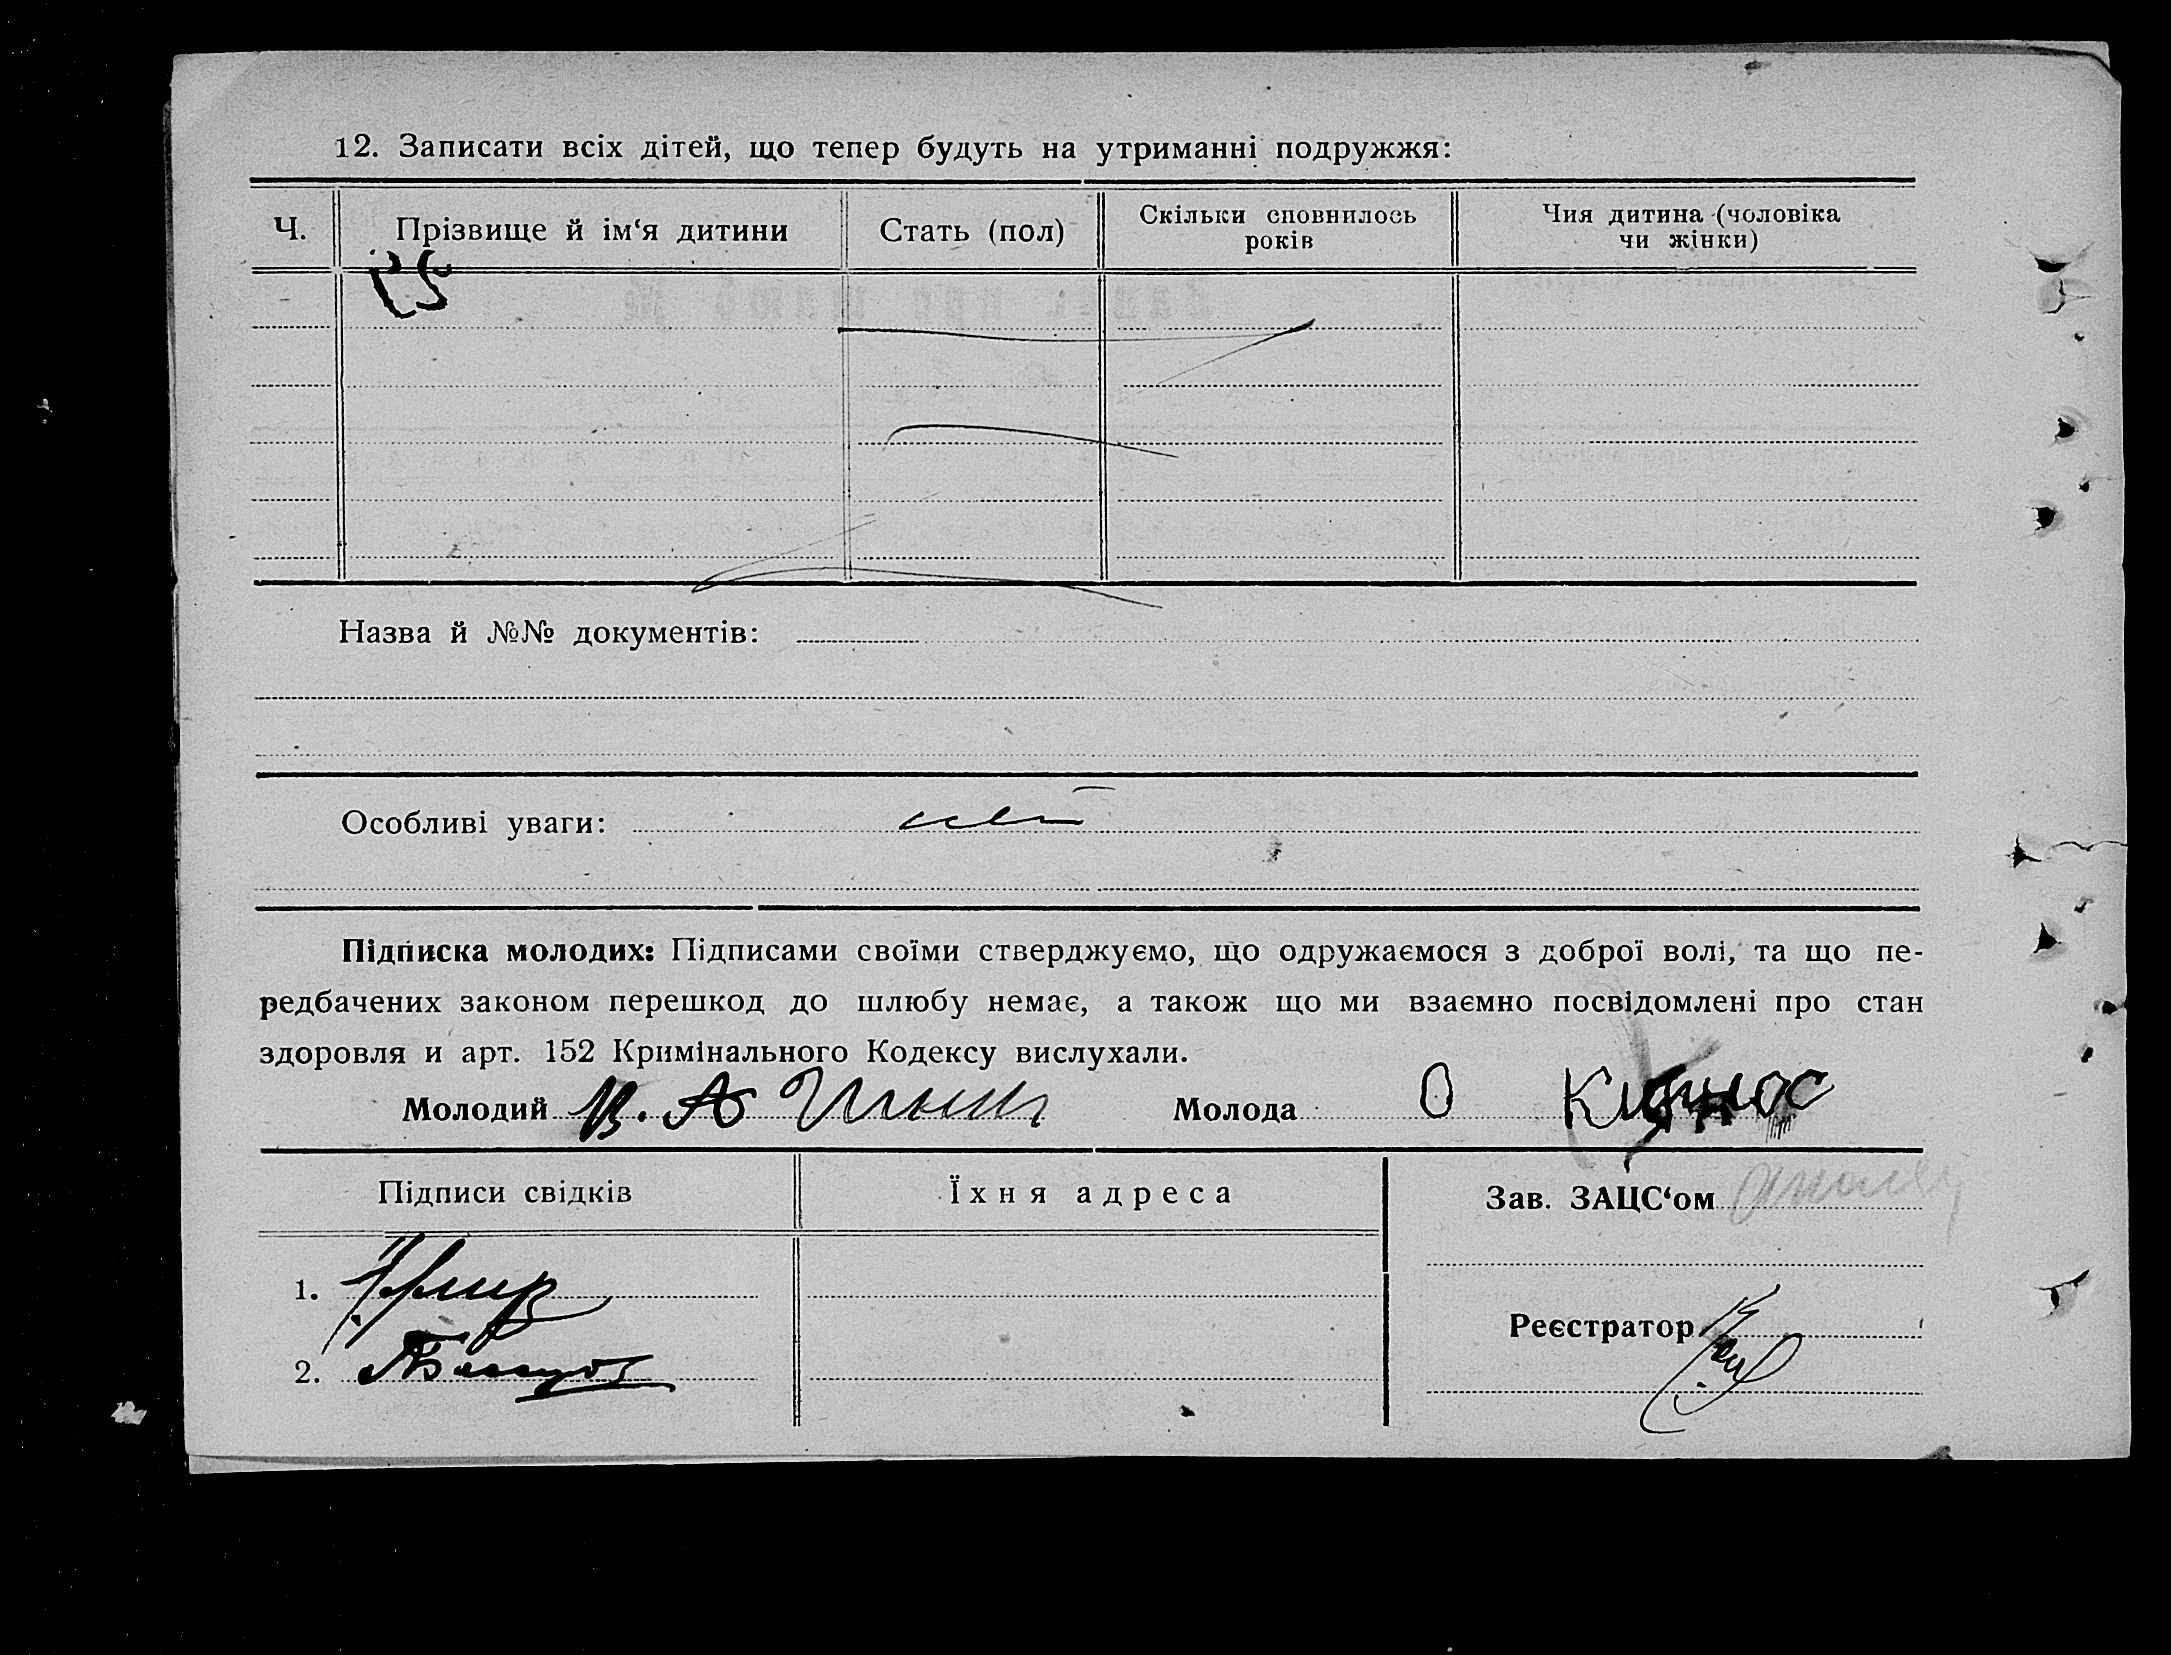 12. Записати всіх дітей, що тепер будуть на утриманні подружжя:
Ч. Прізвище й ім‘я дитини Стать (пол) Скільки сповнилось років Чия дитина (чоловіка чи жінки)
Назва й №№ документів:
Особливі уваги: нет
Підписка молодих: Підписами своїми стверджуємо, що одружаємося з доброї волі, та що пе-
редбачених законом перешкод до шлюбу немає, а також що ми взаємно посвідомлені про стан
здоровля и арт. 152 Кримінального Кодексу вислухали.
Молодий Молода О
Підписи свідків Їхня адреса Зав. ЗАЦС‘ом
1.
Реєстратор
2.